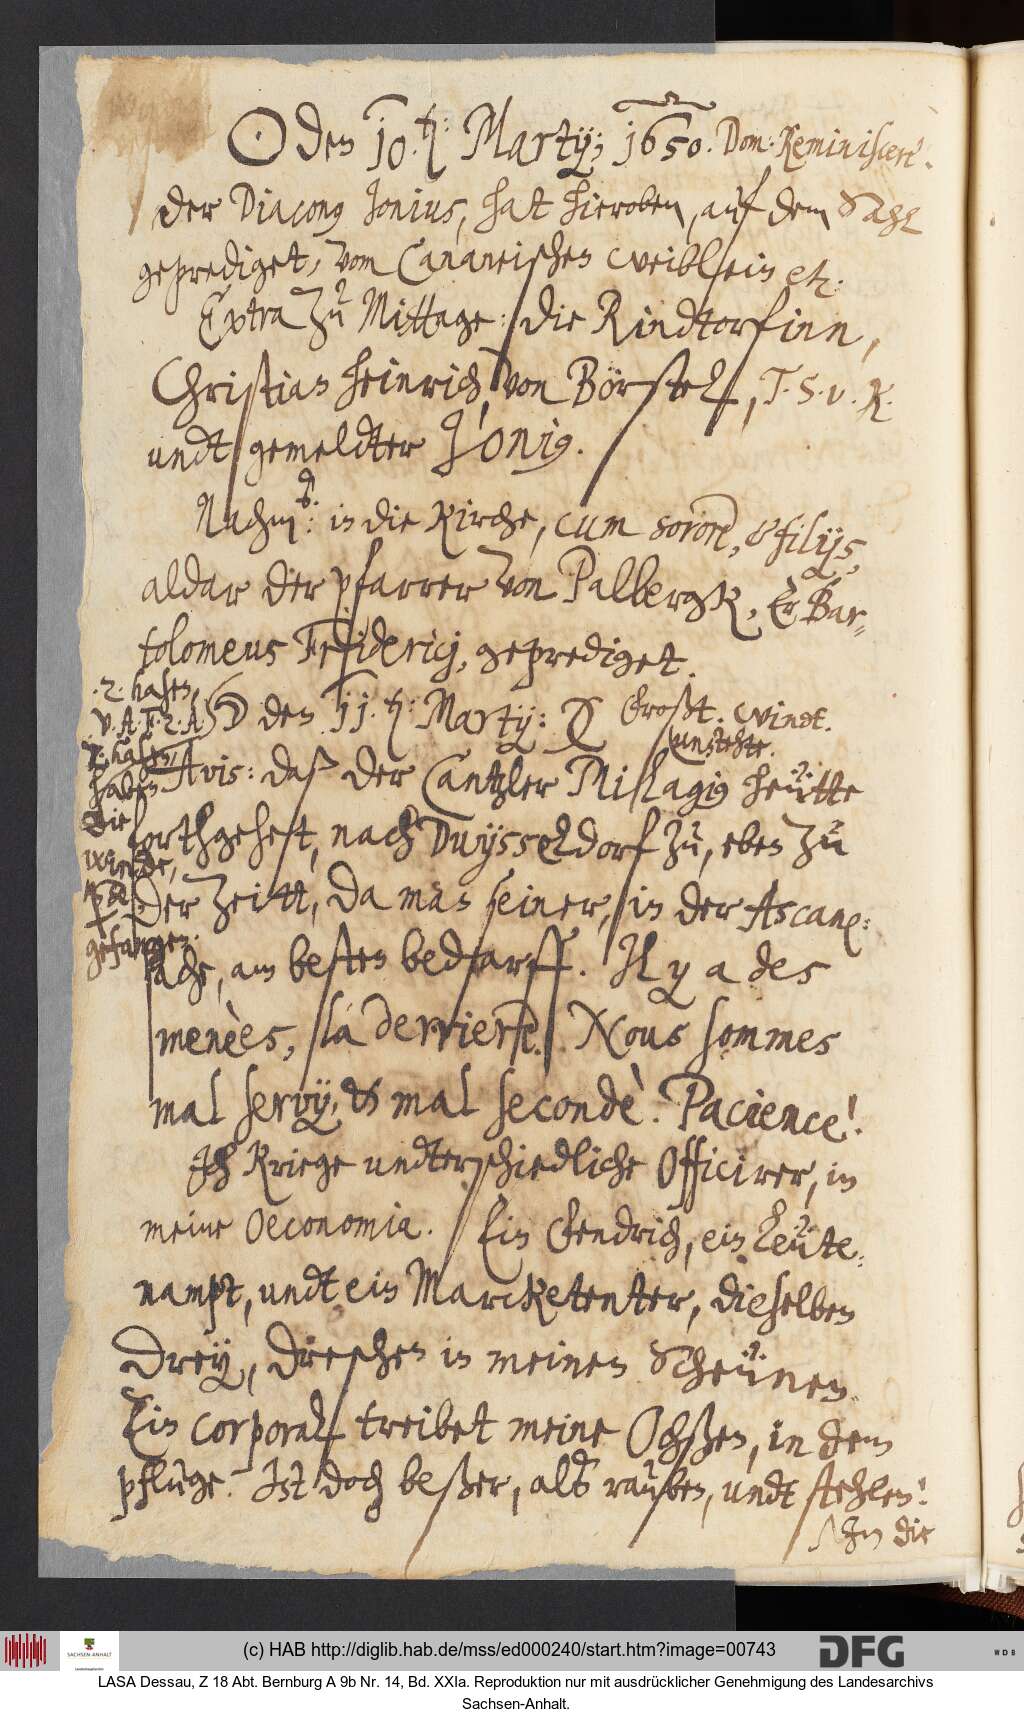 ☉ den 10.th: Martij; 1650. Dom: Reminiscere.
der Diaconus Jonius, hat hieroben, auf dem Sahl
geprediget, vom Cananeischen weiblein etc:
Extra zu Mittage: die Rindtorfinn,
Christian Heinrich, von Börstel, T. S. v. K.
undt gemeldter Jonius.
Nachm: in die Kirche, cum sorore, & filijs,
aldar der pfarrer von Palbergk, Er Bar-
tolomeus Friderici, geprediget.
☽ den 11.th: Martij: Großt. windt.
unstehte.
Avis: daß der Cantzler Milagius heütte
forthgehet, nach Duysseldorf zu, eben zu
der zeitt, da man seiner, in der Ascane:
sache, am besten bedarff. Il y a des
menèes, là derriere. Nous sommes
mal servy, & mal secondè. Pacience!
Ich Kriege undterschiedliche Officirer, in
meine Oeconomia. Ein Fendrich, ein Leüte-
nampt, undt ein Marcketenter, dieselben
drey, dreschen in meinen Scheünen.
Ein Corporal treibet meine Ochßen, in dem
pfluge. Ist doch beßer, alß rauben, undt stehlen!
In die
.2. hasen,
2. hasen,
haben
die
winde,
gefangen.
(c) HAB http://diglib.hab.de/mss/ed000240/start.htm?image=00743
SACHSEN-ANHALT
DFG
WDB
LASA Dessau, Z 18 Abt. Bernburg A 9b Nr. 14, Bd. XXIa. Reproduktion nur mit ausdrücklicher Genehmigung des Landesarchivs
Sachsen-Anhalt.